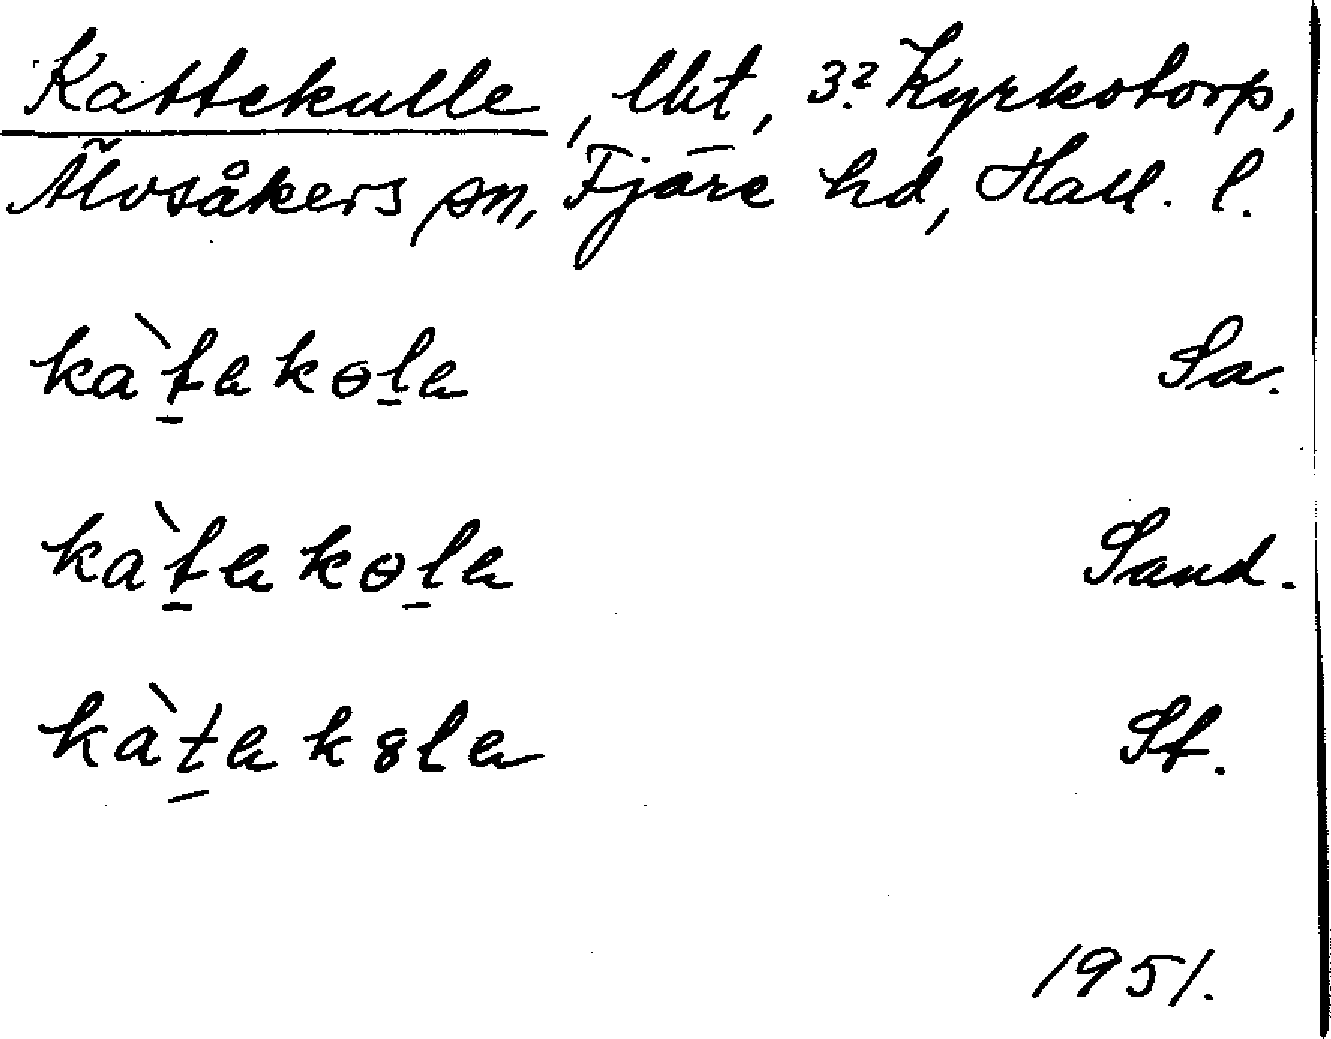 Kattekulle, lht, 3:2 Kyrkotorp,
Älvsåkers sn, Fjäre hd, Hall. l.
kàt̠ekɵl̠e Sa.
kàt̠ekɵl̠e Sand.
kàt̠ek8le St.
1951.